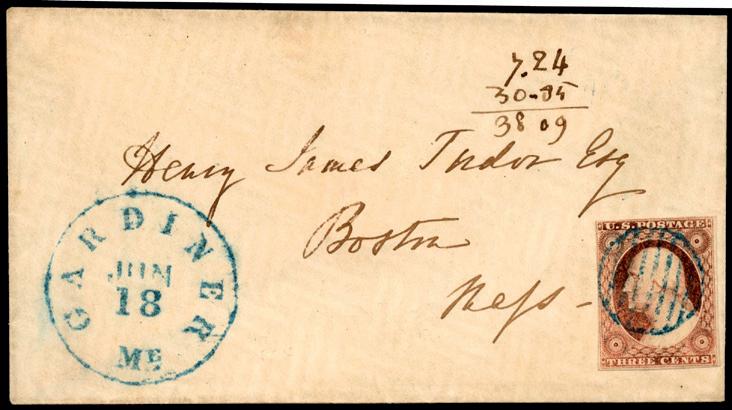 7.24
30.85
38 09
Henry James Tudor Esq
Boston
Mass -
GARDINER
JUN
18
ME
U.S. POSTAGE
THREE CENTS